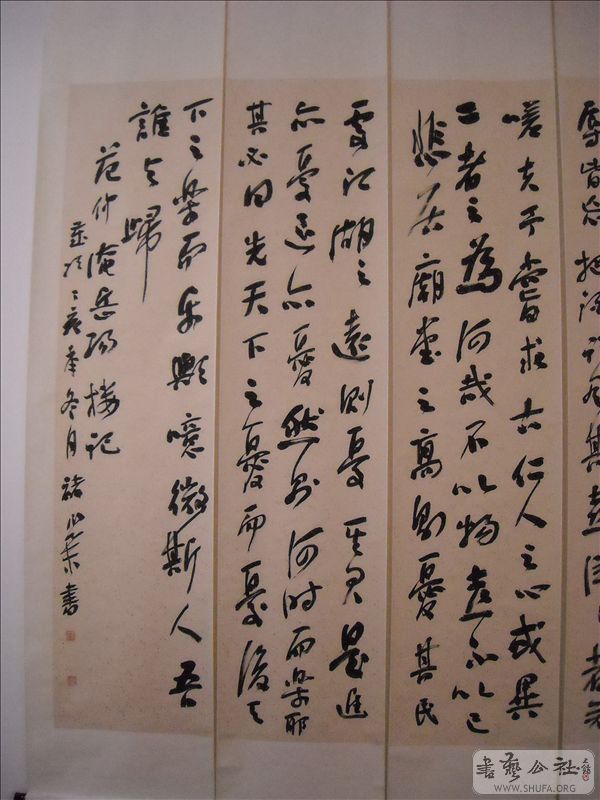 辱皆忘把酒临风其喜洋洋者矣
嗟夫予嘗求古仁人之心或異
二者之為何哉不以物喜不以己
悲居廟堂之高則憂其民
處江湖之遠則憂其君是進
亦憂退亦憂然則何時而樂耶
其必曰先天下之憂而憂後天
下之樂而樂歟噫微斯人吾
誰与歸
范仲淹岳陽樓記
歲次丁亥年冬月 書
書藝公社
WWW.SHUFA.ORG